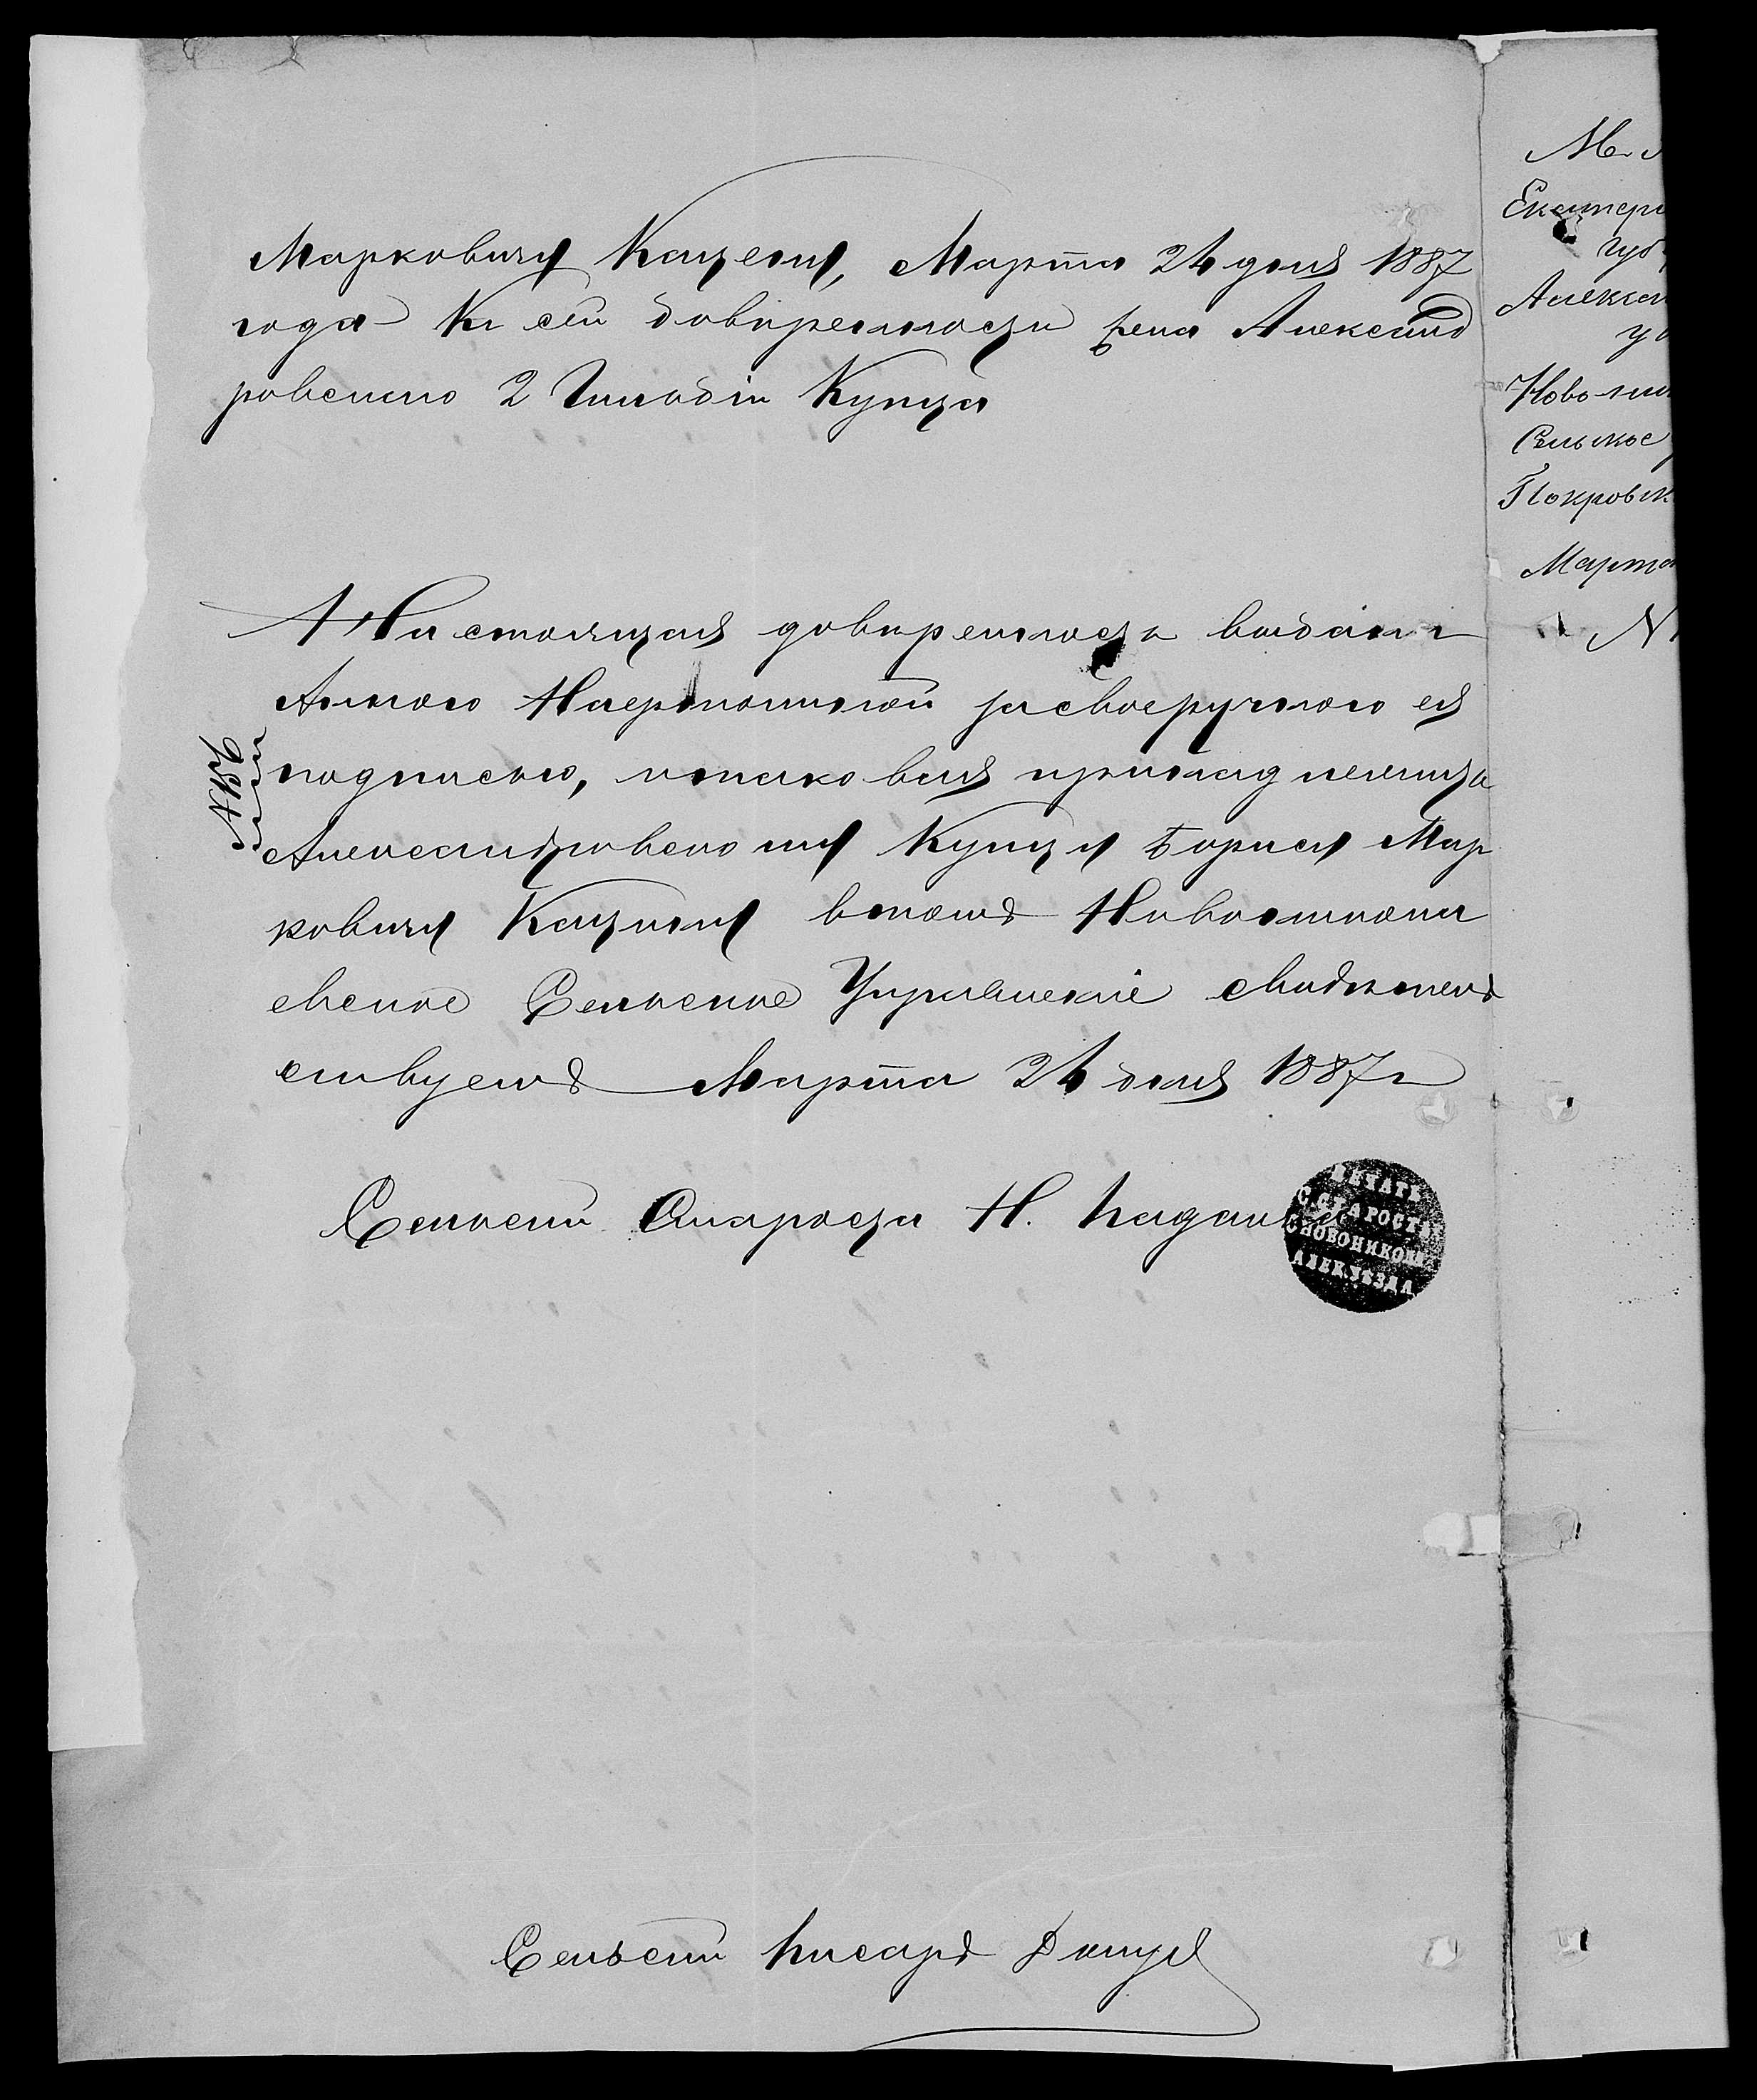 Марковичу Кацену, Марта 24 дня 1887
года К сей довѣренности жена Александ
ровского 2 Гильдіи Купца
Настоящая довѣренность выдана
Анною своеручною ея
подписью, и таковая принадлежитъ
Александровскому Купцу Борису Мар
ковичу Кацену в томъ Новониколa
евское Сельское Управленіе свидѣтель
ствуетъ Марта 24 дня 1887 г
Сельскій Староста Н.
ПЕЧАТЬ
С. СТАРОСТ
С НОВОНИКОЛ
АЛЕК. УѢЗДА
Сельскій Писарь
М.
Екатери
губ
Алексан
у
Ново
Сельское
Покровск
Марта
N